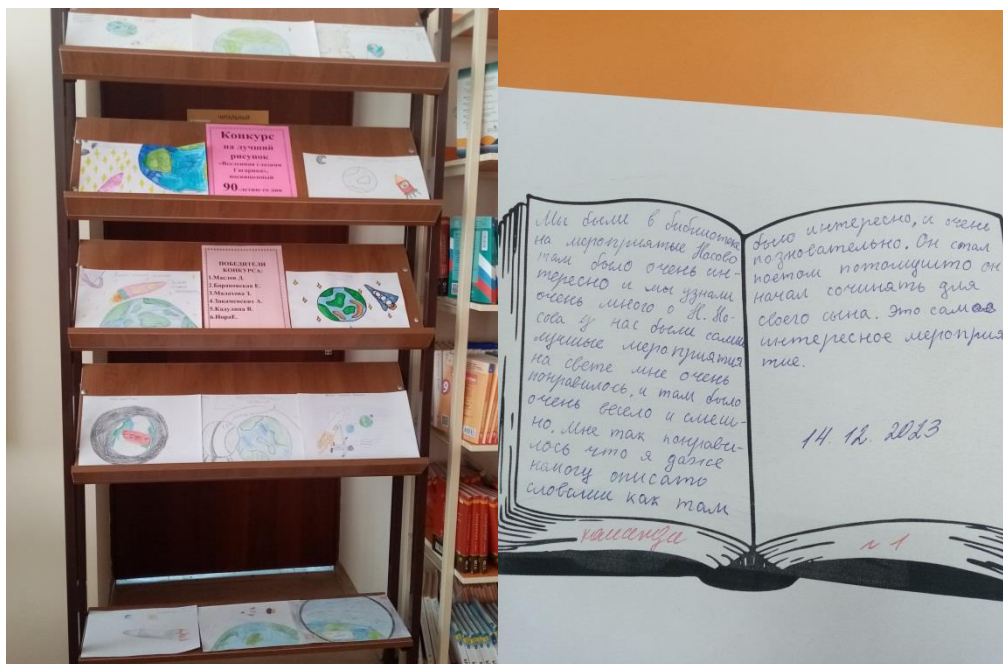 ЧИТАЛЬНЫЙ
Конкурс
на лучший
рисунок
«Вселенная глазами
Гагарина»,
посвященный
90-летию со дня
ПОБЕДИТЕЛИ
КОНКУРСА:
1.Маслов Д.
2.Барановская Е.
3.Молотова З.
4.Закаменских А.
5.Кадулина В.
9
Мы были в библиотеке
на мероприятые Насово
там было очень ин-
тересно и мы узнали
очень много о Н. Но-
сова у нас были самые
лучшые мероприятия
на свете мне очень
понравилось, и там было
очень весело и смеш-
но. Мне так понрави-
лось что я даже
немогу описать
словами как там
было интересно, и очень
позновательно. Он стал
поетом потомушто он
начал сочинять для
своего сына. Это самое
интересное мероприя
тие.
14. 12. 2023
команда
№ 1